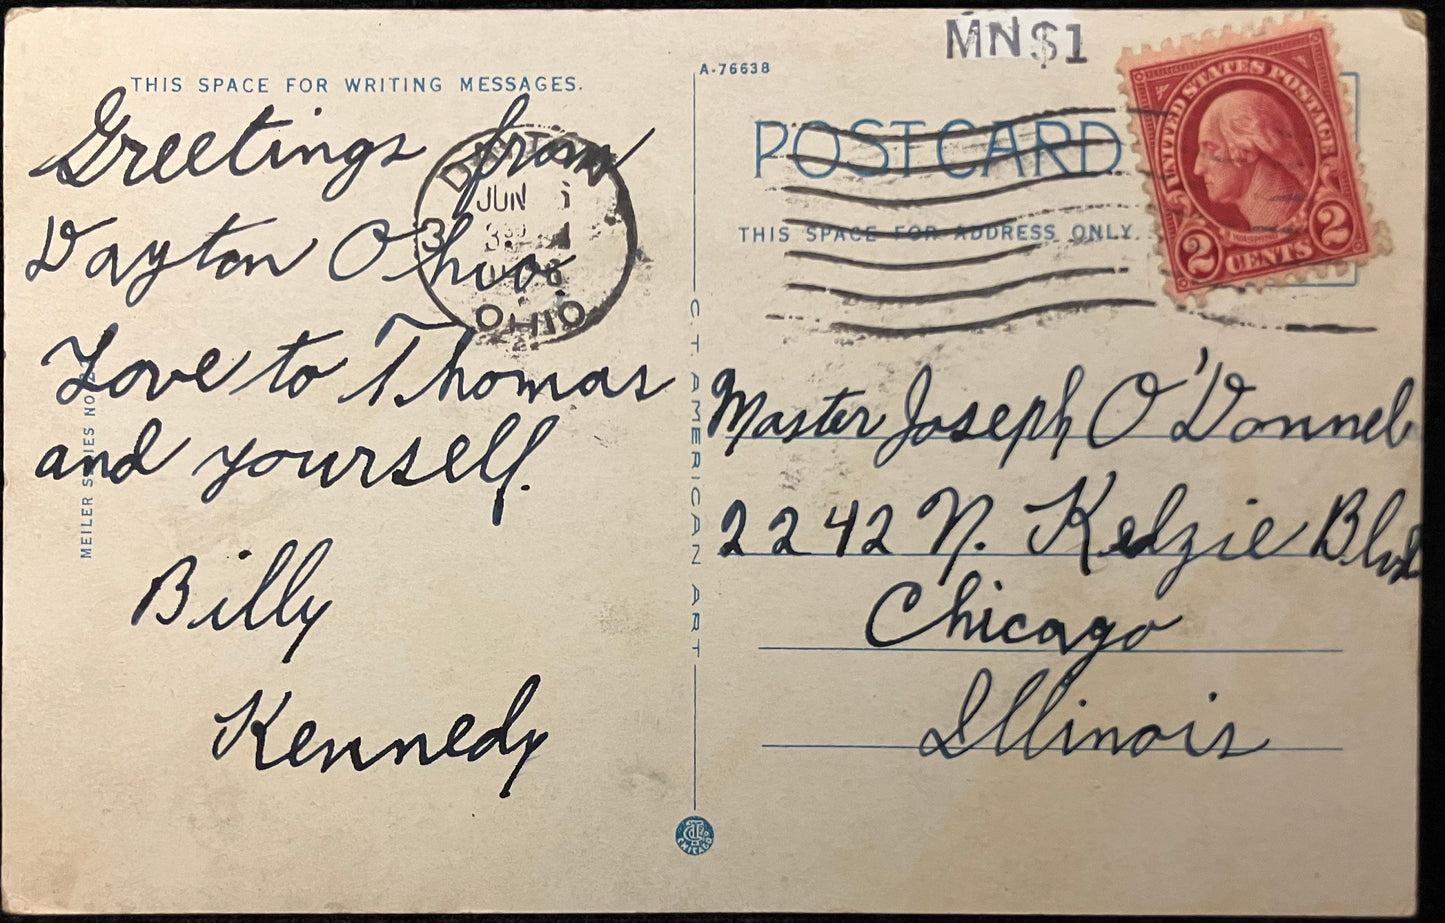 THIS SPACE FOR WRITING MESSAGES.
Greetings from
Dayton Ohio
Love to Thomas
and yourself.
Billy
Kennedy
MEILER SERIES NO.
DAYTON
JUN
3
OHIO
A-76638
C. T. AMERICAN ART
CHICAGO
MN $1
POST CARD
THIS SPACE FOR ADDRESS ONLY.
UNITED STATES POSTAGE
WASHINGTON
2 CENTS 2
Master Joseph O'Donnel
2242 N. Kedzie Blvd
Chicago
Illinois